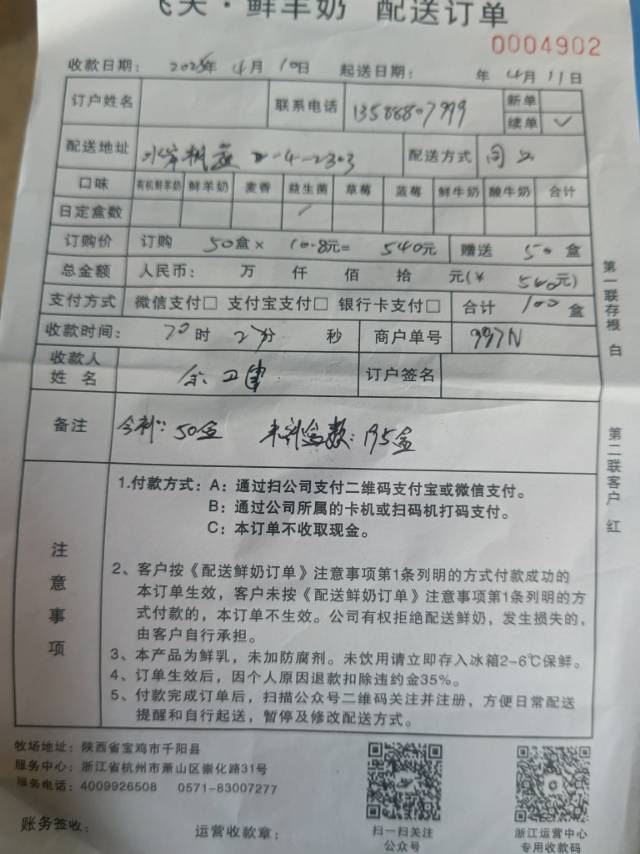 天·鲜羊奶 配送订单
0004902
收款日期: 2025年 4月 10日 起送日期: 年 4月 11日
订户姓名 联系电话 13588807999 新单
续单 ✓
配送地址 2-4-2303 配送方式
口味 有机鲜羊奶 鲜羊奶 麦香 益生菌 草莓 蓝莓 鲜牛奶 酸牛奶 合计
日定盒数
订购价 订购 50盒× 10.8元= 540元 赠送 50盒
总金额 人民币: 万 仟 佰 拾 元(¥ 540元)
支付方式 微信支付□ 支付宝支付□ 银行卡支付□ 合计 100盒
收款时间: 20时 27分 秒 商户单号 997N
收款人
姓名 订户签名
备注 50盒 195盒
第一联存根 白
第二联客户 红
注意事项
1.付款方式: A: 通过扫公司支付二维码支付宝或微信支付。
B: 通过公司所属的卡机或扫码机打码支付。
C: 本订单不收取现金。
2、客户按《配送鲜奶订单》注意事项第1条列明的方式付款成功的
本订单生效,客户未按《配送鲜奶订单》注意事项第1条列明的方
式付款的,本订单不生效。公司有权拒绝配送鲜奶,发生损失的,
由客户自行承担。
3、本产品为鲜乳,未加防腐剂。未饮用请立即存入冰箱2-6℃保鲜。
4、订单生效后,因个人原因退款扣除违约金35%。
5、付款完成订单后,扫描公众号二维码关注并注册,方便日常配送
提醒和自行起送,暂停及修改配送方式。
牧场地址: 陕西省宝鸡市千阳县
服务中心: 浙江省杭州市萧山区崇化路31号
服务电话: 4009926508 0571-83007277
账务签收: 运营收款章:
扫一扫关注
公众号
浙江运营中心
专用收款码